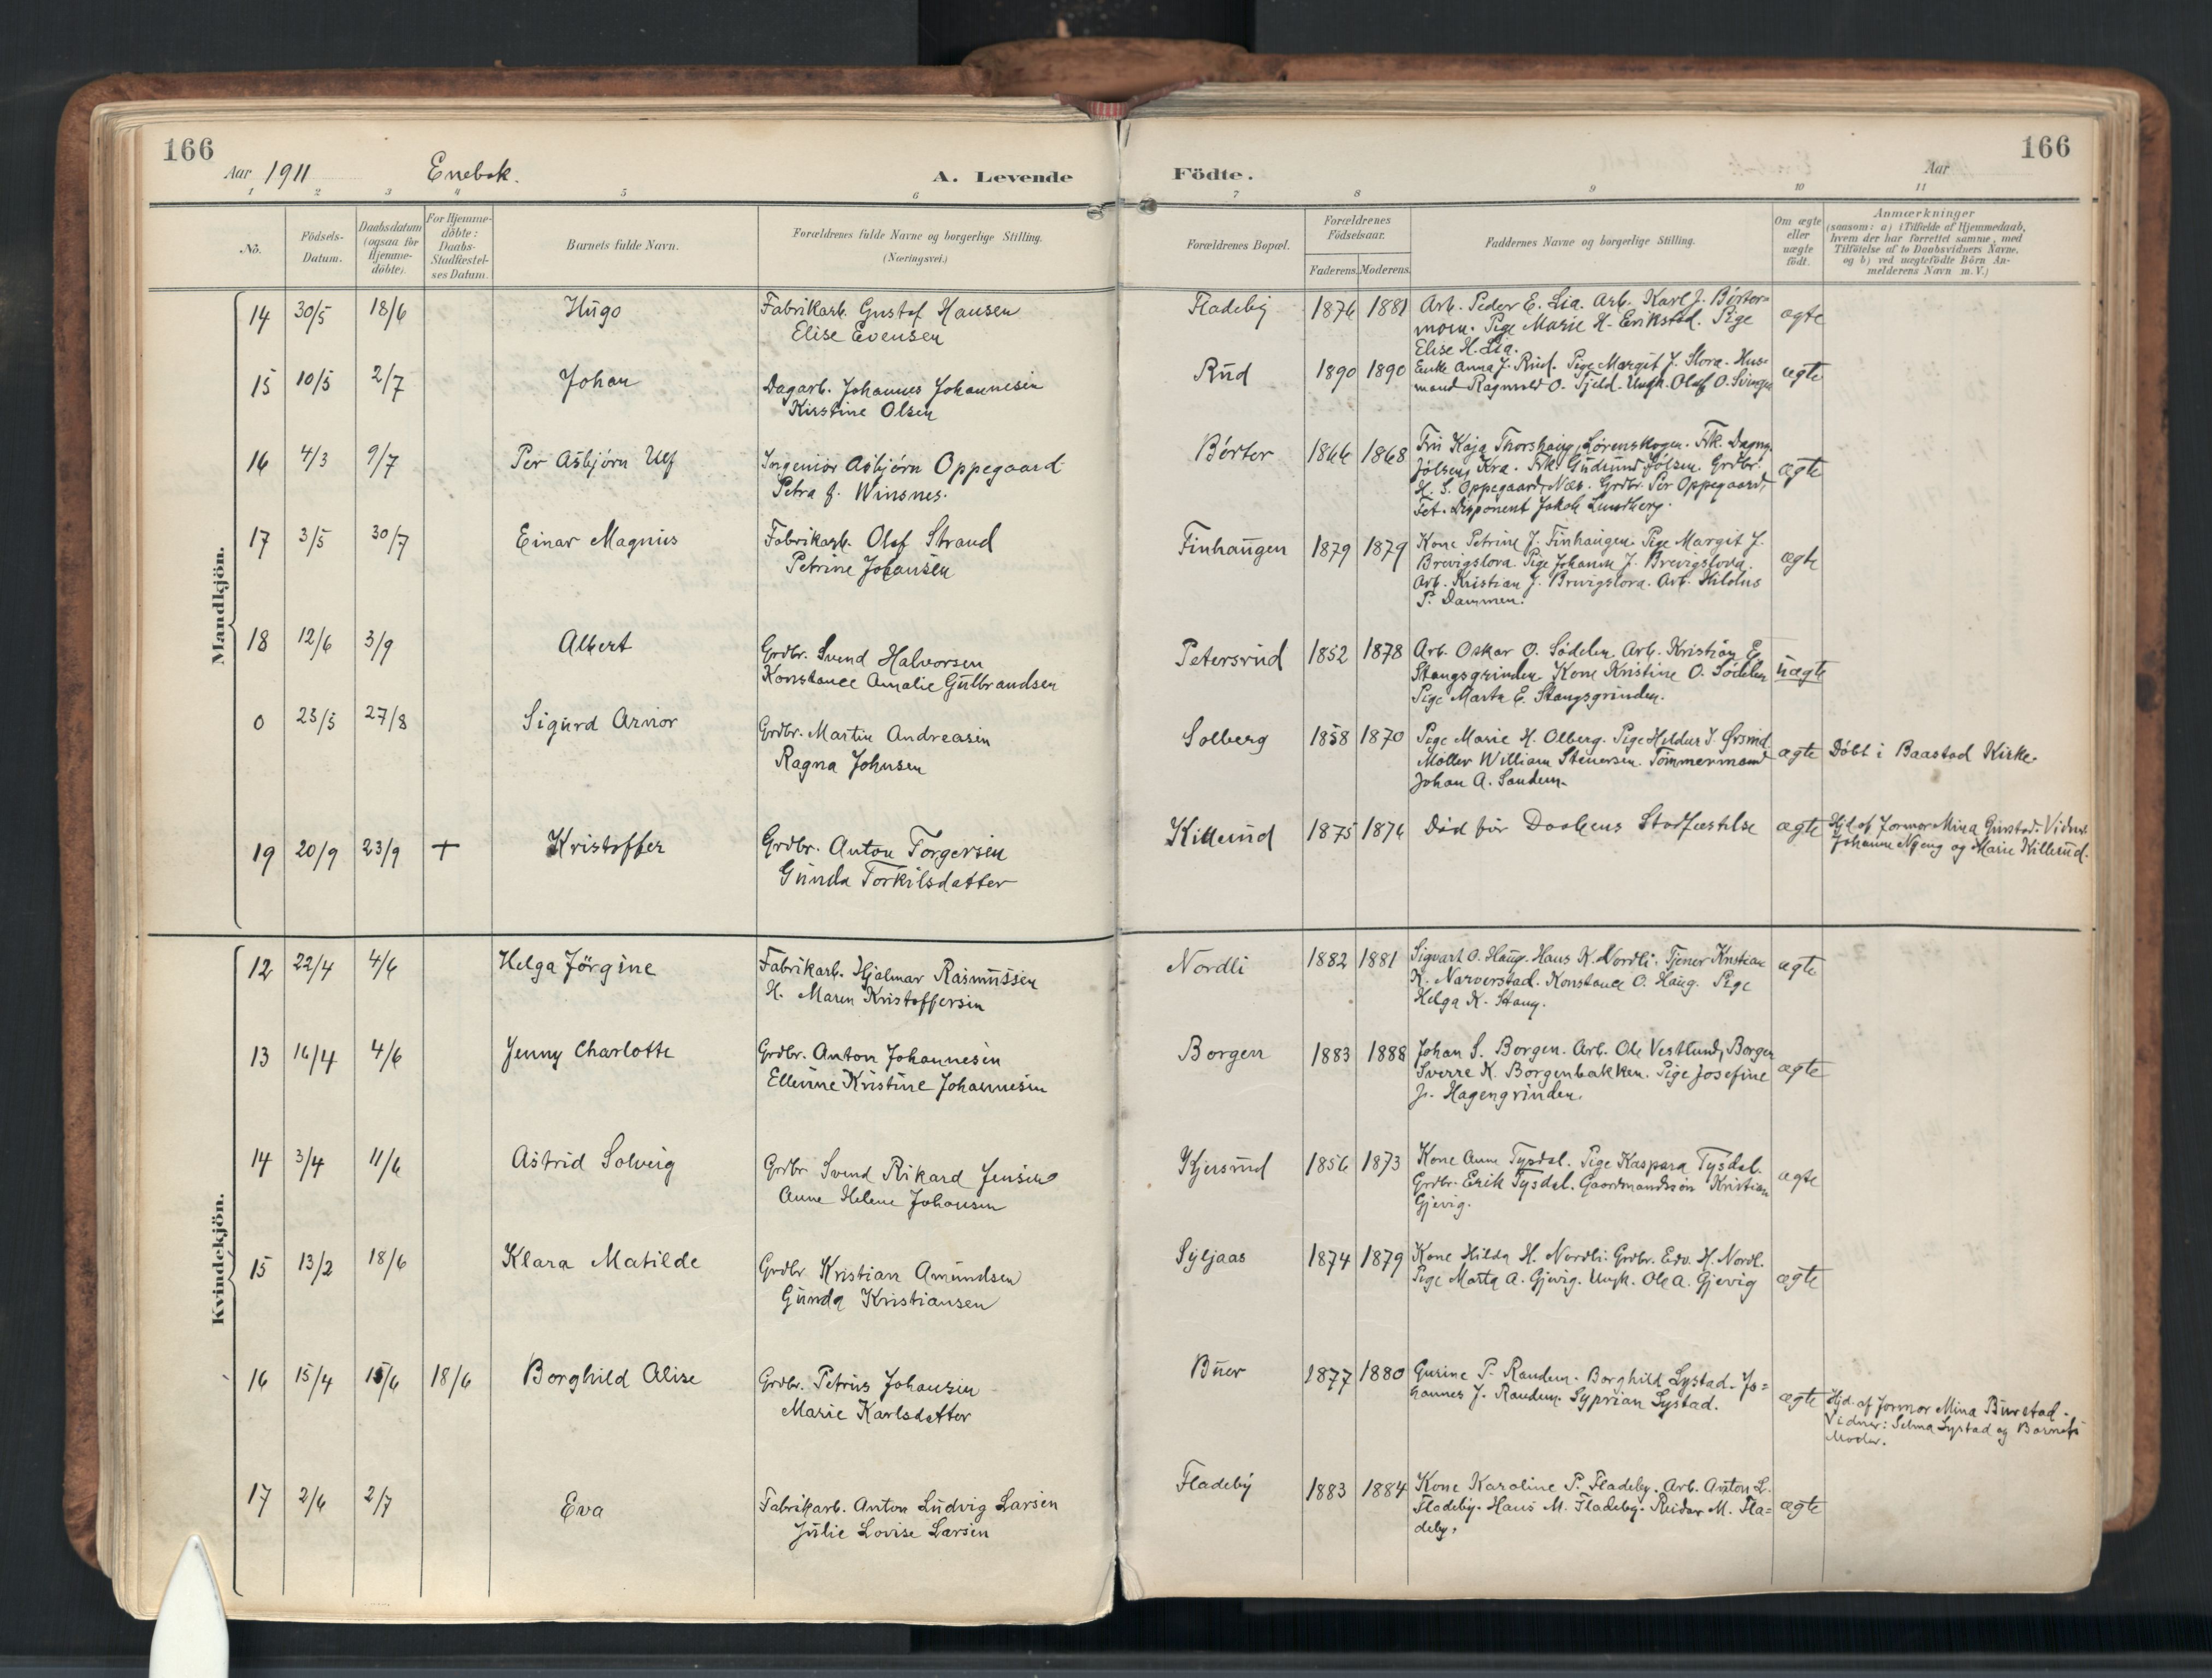 166
166
Aar 1911
Enebak.
A. Levende
Födte.
Aar
1 2 3 4 5 6 7 8 9 10 11
Nö.
Födsels-
Datum.
Daabsdatum
(ogsaa for
Hjemme-
döbte).
For Hjemme-
döbte:
Daabs-
Stadfæstel-
ses Datum.
Barnets fulde Navn.
Forældrenes fulde Navne og borgerlige Stilling.
(Næringsvei.)
Forældrenes Bopæl.
Forældrenes
Födselsaar.
Faderens. Moderens.
Faddernes Navne og borgerlige Stilling.
Om ægte
eller
uægte
födt.
Anmærkninger
(saasom: a) i Tilfælde af Hjemmedaab,
hvem der har forrettet samme, med
Tilföielse af to Daabsvidners Navne,
og b) ved uægtefödte Börn An-
melderens Navn m. V.)
Mandkjön.
14 30/5 18/6 Hugo
Fabrikarb. Gustaf Hansen
Elise Evensen
Fladeby 1876 1881
Arb. Peder E. Lia. Arb. Karl J. Börter-
moen. Pige Marie H. Erikstad. Pige
Elise H. Lia.
ægte
15 10/5 2/7 Johan
Dagarb. Johannes Johannesen
Kirstine Olsen
Rud 1890 1890
Enke Anna J. Rud. Pige Margit J. Slora. Hus-
mand Ragnvald O. Tjeld. Ungk. Olaf O. Svinger
ægte
16 4/3 9/7 Per Asbjörn Ulf
Ingeniör Asbjörn Oppegaard
Petra f. Winsnes.
Börter 1866 1868
Fru Kaja Thorshaug, Lörenskogen. Frk. Dagny
Jölsen, Kra. Frk. Gudrun Jölsen. Grdbr.
H. S. Oppegaard, Næs. Grdbr. Per Oppegaard,
Fet. Disponent Jakob Lundberg.
ægte
17 3/5 30/7 Einar Magnus
Fabrikarb. Olaf Strand
Petrine Johansen
Finhaugen 1879 1879
Kone Petrine J. Finhaugen. Pige Margit J.
Brevigslora. Pige Johanne J. Brevigslora.
Arb. Kristian J. Brevigslora. Arb. Hilolus
P. Dammen.
ægte
18 12/6 3/9 Albert
Grdbr. Svend Halvorsen
Konstance Amalie Gulbrandsen
Petersrud 1852 1878
Arb. Oskar O. Södelen. Arb. Kristian E.
Stangsgrinden. Kone Kristine O. Södelen
Pige Marta E. Stangsgrinden.
uægte
0 23/5 27/8 Sigurd Arnor
Grdbr. Martin Andreasen
Ragna Johnsen
Solberg 1858 1870
Pige Marie H. Olberg. Pige Hildur J.
Möller William Stenersen. Tömmermand
Johan A. Sandem.
ægte
Döbt i Baastad Kirke.
19 20/9 23/9 + Kristoffer
Grdbr. Anton Torgersen
Gunda Torkilsdatter
Killerud 1875 1876
Död för Daabens Stadfæstelse
ægte
Hjd. af Jormor Mina Vidner
Johanne Nyeng og Marie Killerud.
Kvindekjön.
12 22/4 4/6 Helga Jörgine
Fabrikarb. Hjalmar Rasmussen
H. Maren Kristoffersen
Nordli 1882 1881
Sigvart O. Haug. Hans K. Nordli. Tjener Kristian
K. Narverstad. Konstance O. Haug. Pige
Helga K. Stang.
ægte
13 16/4 4/6 Jenny Charlotte
Grdbr. Anton Johannesen
Ellevine Kristine Johannesen
Borgen 1883 1888
Johan S. Borgen. Arb. Ole Vestlund, Borgen
Sverre K. Borgenbakken. Pige Josefine
J. Hagengrinden.
ægte
14 3/4 11/6 Astrid Solveig
Grdbr Svend Rikard Jensen
Anne Helene Johansen
Kjensrud 1856 1873
Kone Anne Tysdal. Pige Kaspara Tysdal.
Grdbr. Erik Tysdal. Gaardmandssön Kristian
Gjevig.
ægte
15 13/2 18/6 Klara Matilde
Grdbr Kristian Amundsen
Gunda Kristiansen
Syljaas 1874 1879
Kone Hilda H. Nordli. Grdbr. Edv. H. Nordl.
Pige Marta A. Gjevig. Ungk. Ole A. Gjevig
ægte
16 15/4 15/6 18/6 Borghild Alise
Grdbr. Petrus Johansen
Marie Karlsdatter
Buer 1877 1880
Gurine P. Randem. Borghild Lystad. Jo-
hannes J. Randem. Syprian Lystad.
ægte
Hjd. af Jormor Mina Burstad.
Vidner: Selma Lystad og Barnets
Moder.
17 2/6 2/7 Eva
Fabrikarb. Anton Ludvig Larsen
Julie Lovise Larsen
Fladeby 1883 1884
Kone Karoline P. Fladeby. Arb. Anton L.
Fladeby. Hans M. Fladeby. Reidar M. Fla-
deby.
ægte